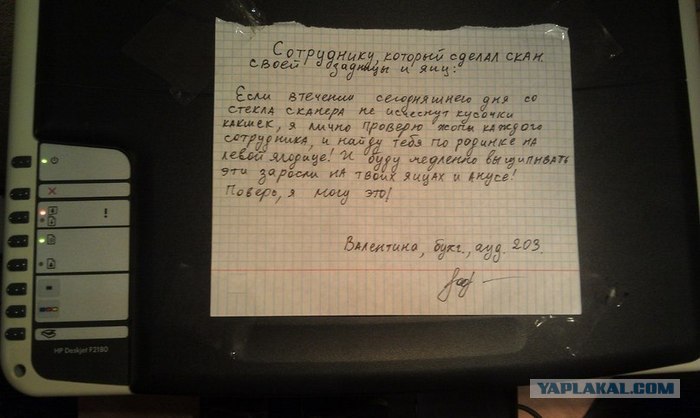 Сотруднику, который сделал скан
своей задницы и яиц:
Если втечении сегодняшнего дня со
стекла сканера не исчезнут кусочки
какшек, я лично проверю жопы каждого
сотрудника, и найду тебя по родинке на
левой ягодице! И буду медленно выщипывать
эти заросли на твоих яйцах и анусе!
Поверь, я могу это!
Валентина, бухг., ауд. 203.
HP Deskjet F2180
YAPLAKAL.COM